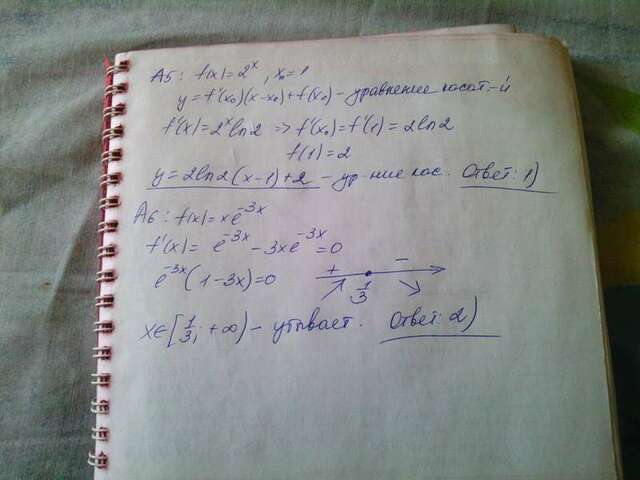 A5: f(x)=2^x, x₀=1
y=f'(x₀)(x-x₀)+f(x₀) - уравнение касат-й
f'(x)=2^x ln2 => f'(x₀)=f'(1)=2ln2
f(1)=2
y=2ln2(x-1)+2 - ур-ние кас. Ответ: 1)
A6: f(x)=xe^{-3x}
f'(x)= e^{-3x} - 3xe^{-3x}=0
e^{-3x}(1-3x)=0 + 1/3 -
x∈[1/3; +∞) - убывает. Ответ: 2)